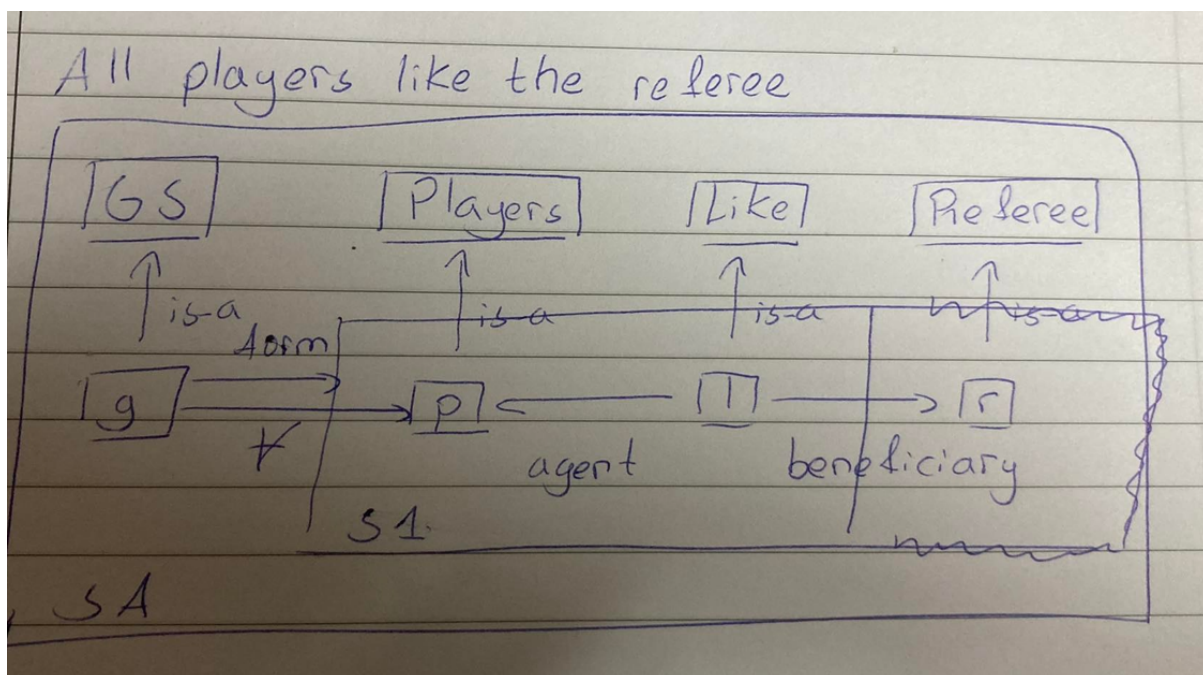 All players like the referee
GS Players Like Referee
is-a is-a is-a is-a
form
g p l r
∀ agent beneficiary
S1
SA